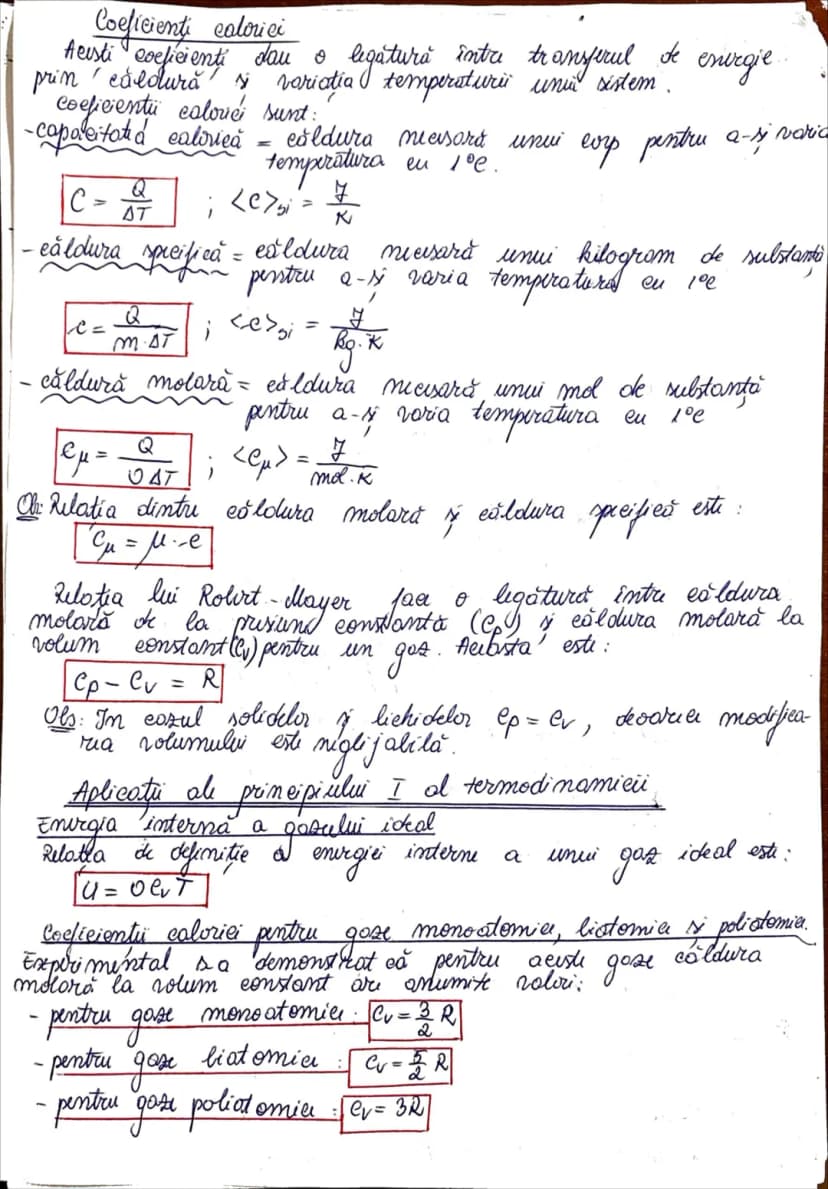 Coeficienți calorici
Acești coeficienți dau o legătură între transferul de energie
prin căldură și variația temperaturii unui sistem.
Coeficienții calorici sunt:
-capacitată calorică = căldura necesară unui corp pentru a-și varia
temperatura cu 1°C.
C = Q/ΔT ; <C>SI = J/K
- căldura specifică = căldura necesară unui kilogram de substanță
pentru a-și varia temperatura cu 1°C
c = Q/m·ΔT ; <c>SI = J/kg·K
- căldură molară = căldura necesară unui mol de substanță
pentru a-și varia temperatura cu 1°C
Cμ = Q/υΔT ; <Cμ> = J/mol·K
Ob: Relația dintre căldura molară și căldura specifică este :
Cμ = μ·c
Relația lui Robert-Mayer face o legătură între căldura
molară de la presiune constantă (Cp) și căldura molară la
volum constant (Cv) pentru un gaz. Aceasta este :
Cp - Cv = R
Obs: În cazul solidelor și lichidelor Cp = Cv, deoarece modifica-
rea volumului este neglijabilă.
Aplicații ale principiului I al termodinamicii
Energia internă a gazului ideal
Relația de definiție a energiei interne a unui gaz ideal este :
U = υCvT
Coeficienții calorici pentru gaze monoatomice, biatomice și poliatomice.
Experimental s-a demonstrat că pentru aceste gaze căldura
molară la volum constant are anumite valori:
- pentru gaze monoatomice : Cv = 3/2 R
- pentru gaze biatomice : Cv = 5/2 R
- pentru gaze poliatomice : Cv = 3R